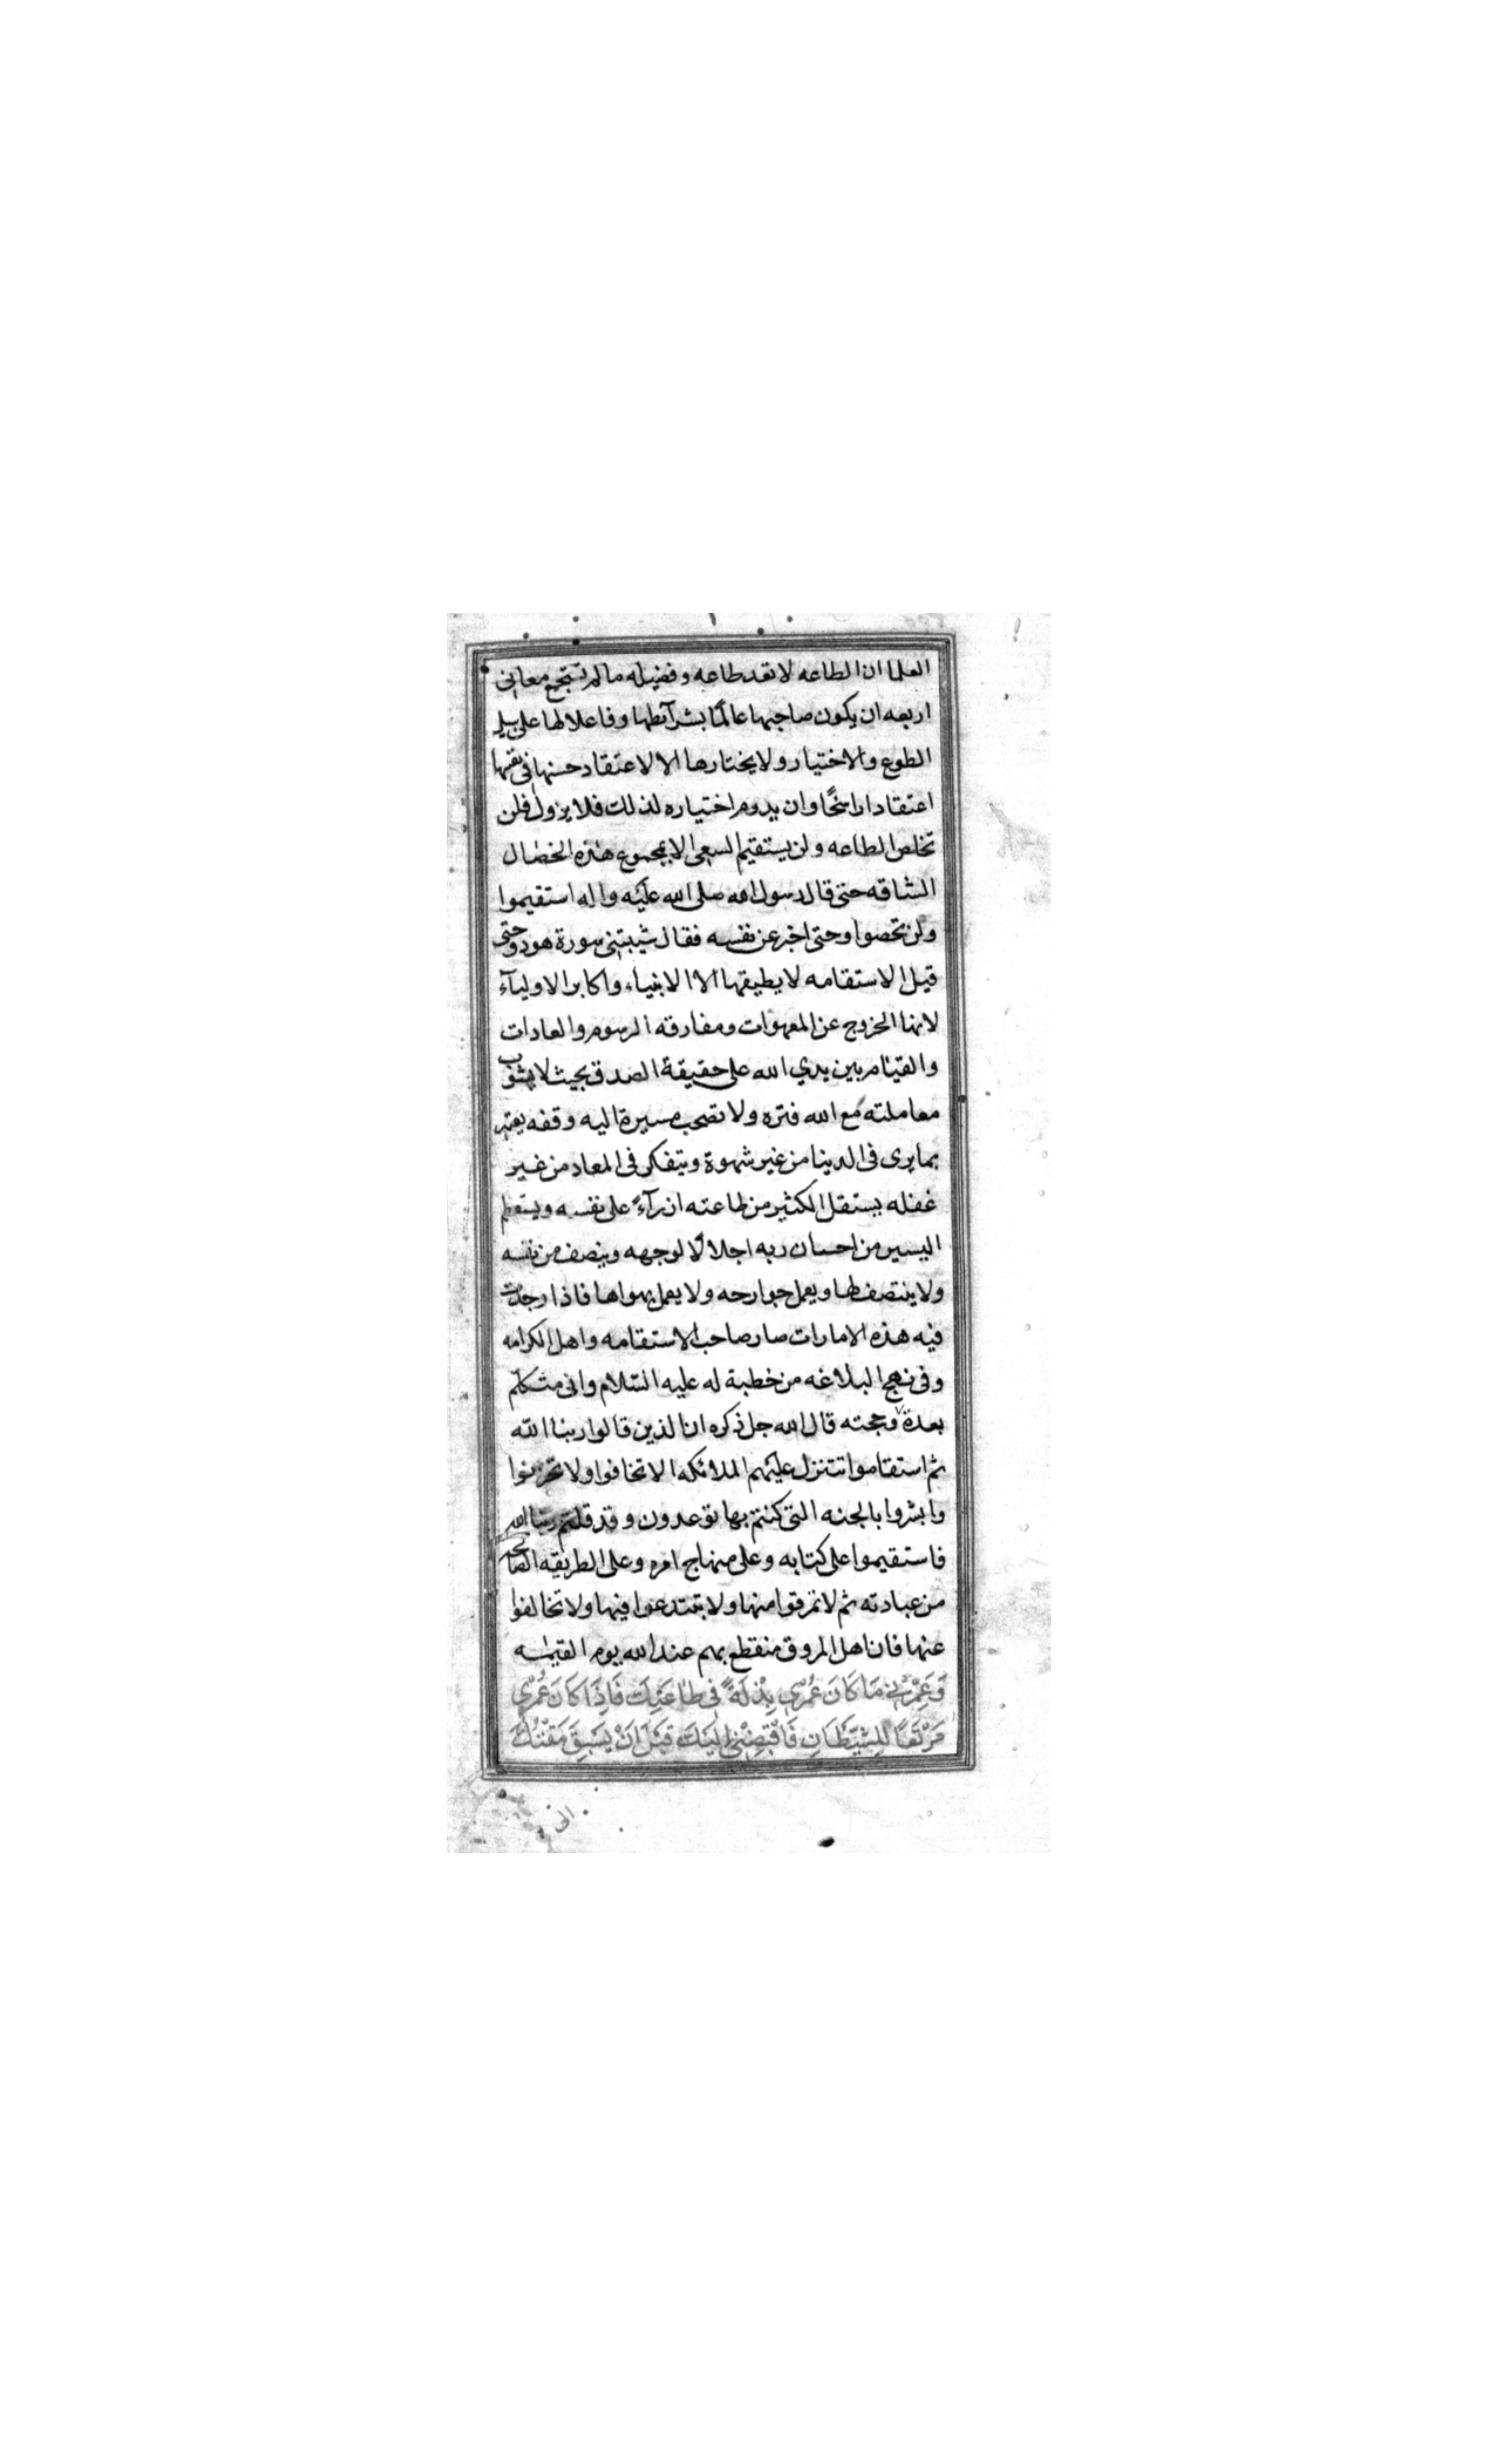 العلما ان الطاعه لا تعد طاعه وفضيله ما لم تستجمع معانى
اربعه ان يكون صاحبها عالمًا بشرآئطها وفاعلا لها على سبيل
الطوع والاختيار ولا يختارها الا لاعتقاد حسنها فى نفسها
اعتقادا راسخًا وان يدوم اختياره لذلك فلا يزول فلن
تخلص الطاعه ولن يستقيم السعى الا بمجموع هذه الخصال
الشاقه حتى قال رسول الله صلى الله عليه واله استقيموا
ولن تحصوا وحتى اخبر عن نفسه فقال شيبتنى سورة هود وحتى
قيل الاستقامه لا يطيقها الا الانبياء واكابر الاوليآء
لانها الخروج عن المعهوات ومفارقه الرسوم والعادات
والقيام بين يدي الله على حقيقة الصدق بحيث لا يشوب
معاملته مع الله فتره ولا تصحب مسيرة اليه وقفه يعتبر
بما يرى فى الدينا من غير شهوة ويتفكر فى المعاد من غير
غفله يستقل الكثير من طاعته ازرآءً على نفسه ويستعظم
اليسير من احسان ربه اجلالًا لوجهه وينصف من نفسه
ولا ينتصف لها ويعمل جوارحه ولا يعمل بهواها فاذا وجدت
فيه هذه الامارات صار صاحب الاستقامه واهل الكرامه
وفى نهج البلاغه من خطبة له عليه السّلام وانى متكلّم
بعدة وحجته قال الله جل ذكره ان الذين قالوا ربنا اللّه
ثم استقاموا تتنزل عليهم الملائكه الا تخافوا ولا تحزنوا
وابشروا بالجنه التى كنتم بها توعدون وقد قلتم ربنا الله
فاستقيموا على كتابه وعلى منهاج امره وعلى الطريقه الصالحه
من عبادته ثم لا تمرقوا منها ولا تبتدعوا فيها ولا تخالفوا
عنها فان اهل المروق منقطع بهم عند الله يوم القيمه
وَعَمِّرْنِي مَا كَانَ عُمُرِي بِذْلَةً فِى طَاعَتِكَ فَاِذَا كَانَ عُمُرِي
مَرْتَعًا لِلشَّيْطَانِ فَاقْبِضْنِى اِلَيْكَ قَبْلَ اَنْ يَسْبِقَ مَقْتُكَ
الى